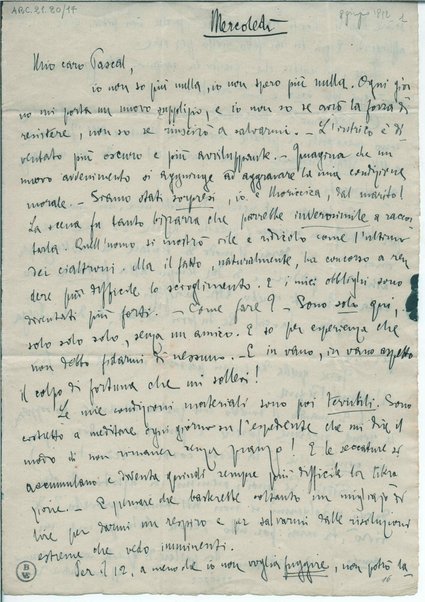 ARC. 21. 20/14
Mercoledì
giugno 1912 1
Mio caro Pascal,
io non so più nulla, io non spero più nulla. Ogni gior
no mi porta un nuovo supplizio, e io non so se avrò la forza di
resistere, non so se riuscirò a salvarmi. – L'intrico è di
ventato più oscuro e più avviluppante. – Immagina che un
nuovo avvenimento si aggiunge ad aggravare la mia condizione
morale. – Siamo stati sorpresi, io e Moricica, dal marito!
La scena fu tanto bizzarra che parrebbe inverosimile a raccon
tarla. Quell'uomo si mostrò vile e ridicolo come l'ultimo
dei cialtroni. Ma il fatto, naturalmente, ha concorso a ren
dere più difficile lo scioglimento. E i miei obblighi sono
diventati più forti. – Come fare? – Sono solo qui,
solo solo solo, senza un amico. E so per esperienza che
non debbo fidarmi di nessuno. – E in vano, in vano aspetto
il colpo di fortuna che mi sollevi!
Le mie condizioni materiali sono poi terribili. Sono
costretto a meditare ogni giorno su l'espediente che mi dia il
modo di non rimaner senza pranzo! E le seccature si
accumulano e diventa quindi sempre più difficile la libera
zione. – E pensare che basterebbe soltanto un migliajo di
lire per darmi un respiro e per salvarmi dalle risoluzioni
estreme che vedo imminenti.
Per il 12, a meno che io non voglia fuggire, non potrò la
B
W
16